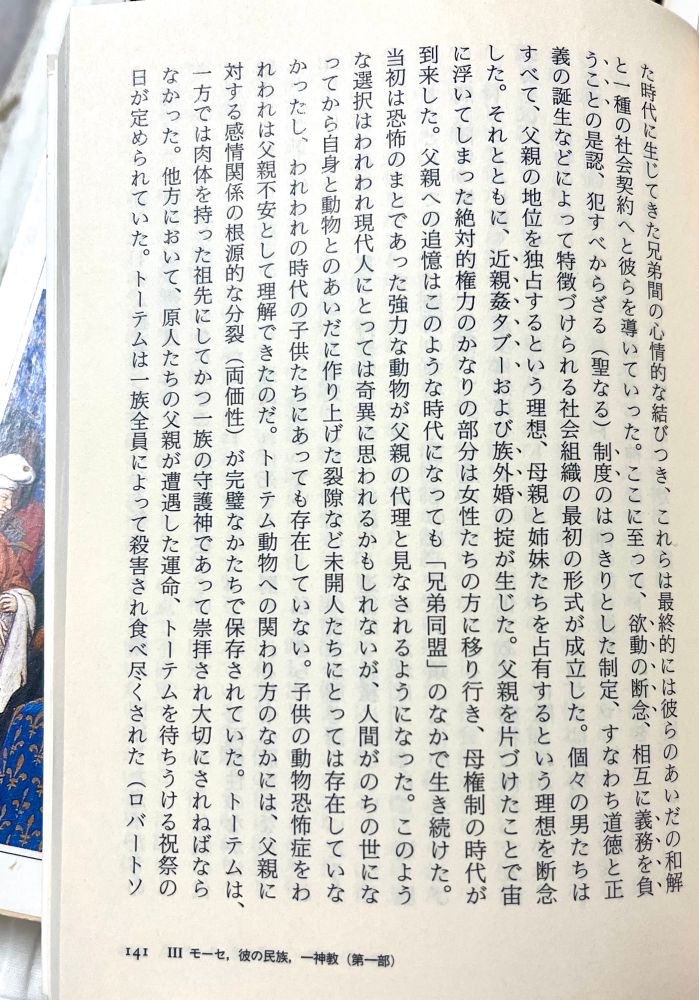 た時代に生じてきた兄弟間の心情的な結びつき、これらは最終的には彼らのあいだの和解
と一種の社会契約へと彼らを導いていった。ここに至って、欲動の断念、相互に義務を負
うことの是認、犯すべからざる（聖なる）制度のはっきりとした制定、すなわち道徳と正
義の誕生などによって特徴づけられる社会組織の最初の形式が成立した。個々の男たちは
すべて、父親の地位を独占するという理想、母親と姉妹たちを占有するという理想を断念
した。それとともに、近親姦タブーおよび族外婚の掟が生じた。父親を片づけたことで宙
に浮いてしまった絶対的権力のかなりの部分は女性たちの方に移り行き、母権制の時代が
到来した。父親への追憶はこのような時代になっても「兄弟同盟」のなかで生き続けた。
当初は恐怖のまとであった強力な動物が父親の代理と見なされるようになった。このよう
な選択はわれわれ現代人にとっては奇異に思われるかもしれないが、人間がのちの世にな
ってから自身と動物とのあいだに作り上げた裂隙など未開人たちにとっては存在していな
かったし、われわれの時代の子供たちにあっても存在していない。子供の動物恐怖症をわ
れわれは父親不安として理解できたのだ。トーテム動物への関わり方のなかには、父親に
対する感情関係の根源的な分裂（両価性）が完璧なかたちで保存されていた。トーテムは、
一方では肉体を持った祖先にしてかつ一族の守護神であって崇拝され大切にされねばなら
なかった。他方において、原人たちの父親が遭遇した運命、トーテムを待ちうける祝祭の
日が定められていた。トーテムは一族全員によって殺害され食べ尽くされた（ロバートソ
141 III モーセ，彼の民族，一神教（第一部）